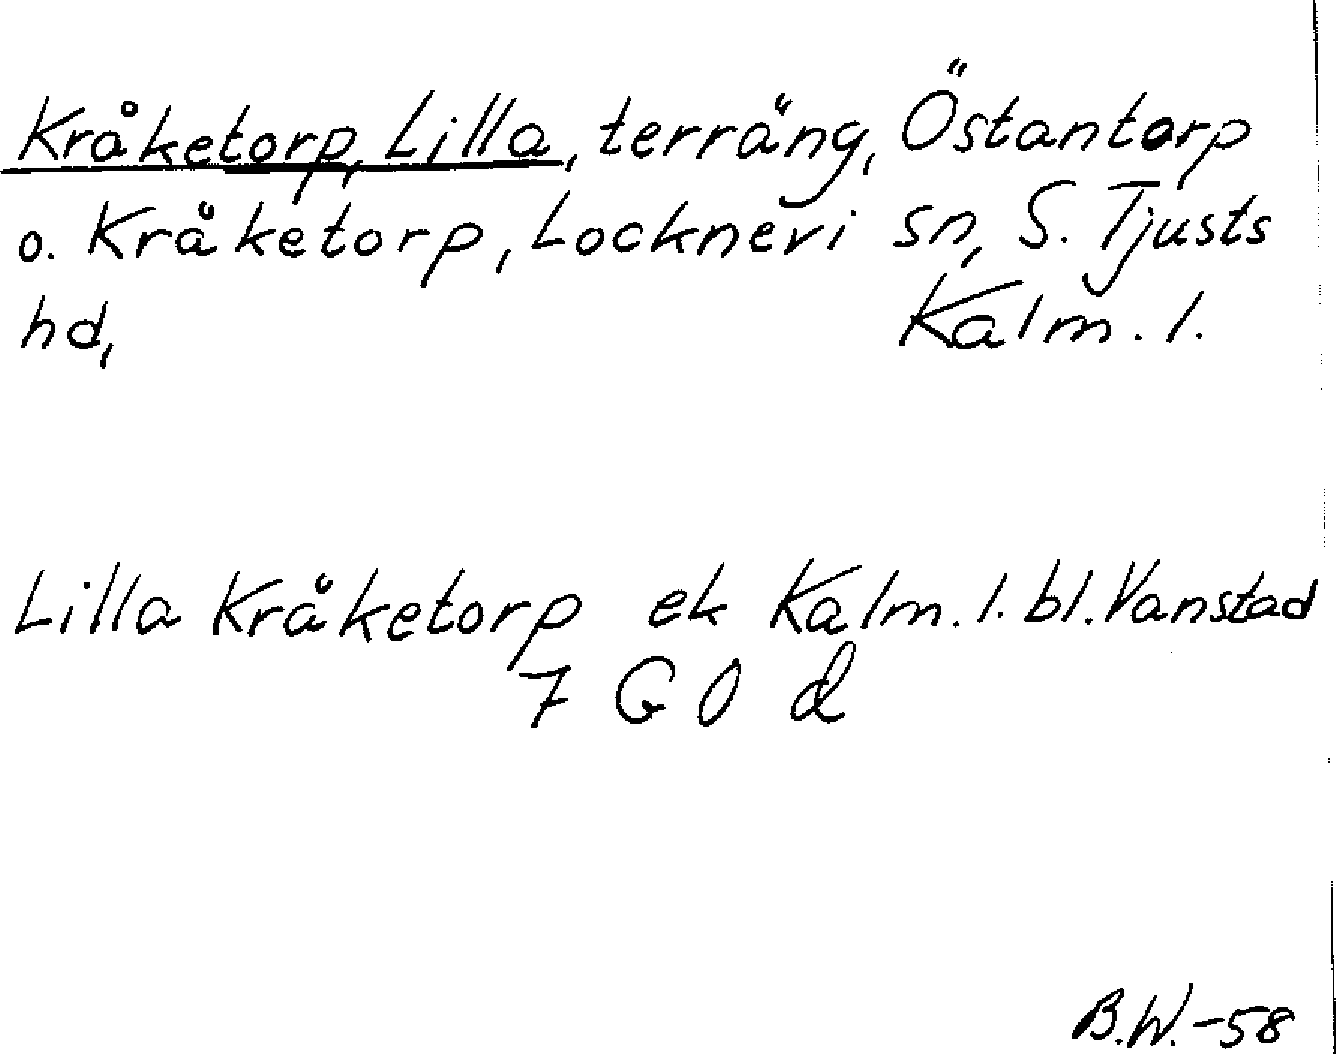 Kråketorp, Lilla, terräng, Östantorp
o. Kråketorp, Locknevi sn, S. Tjusts
hd, Kalm. l.
Lilla Kråketorp ek Kalm. l. bl. Vanstad
7 G 0 d
B.W. -58